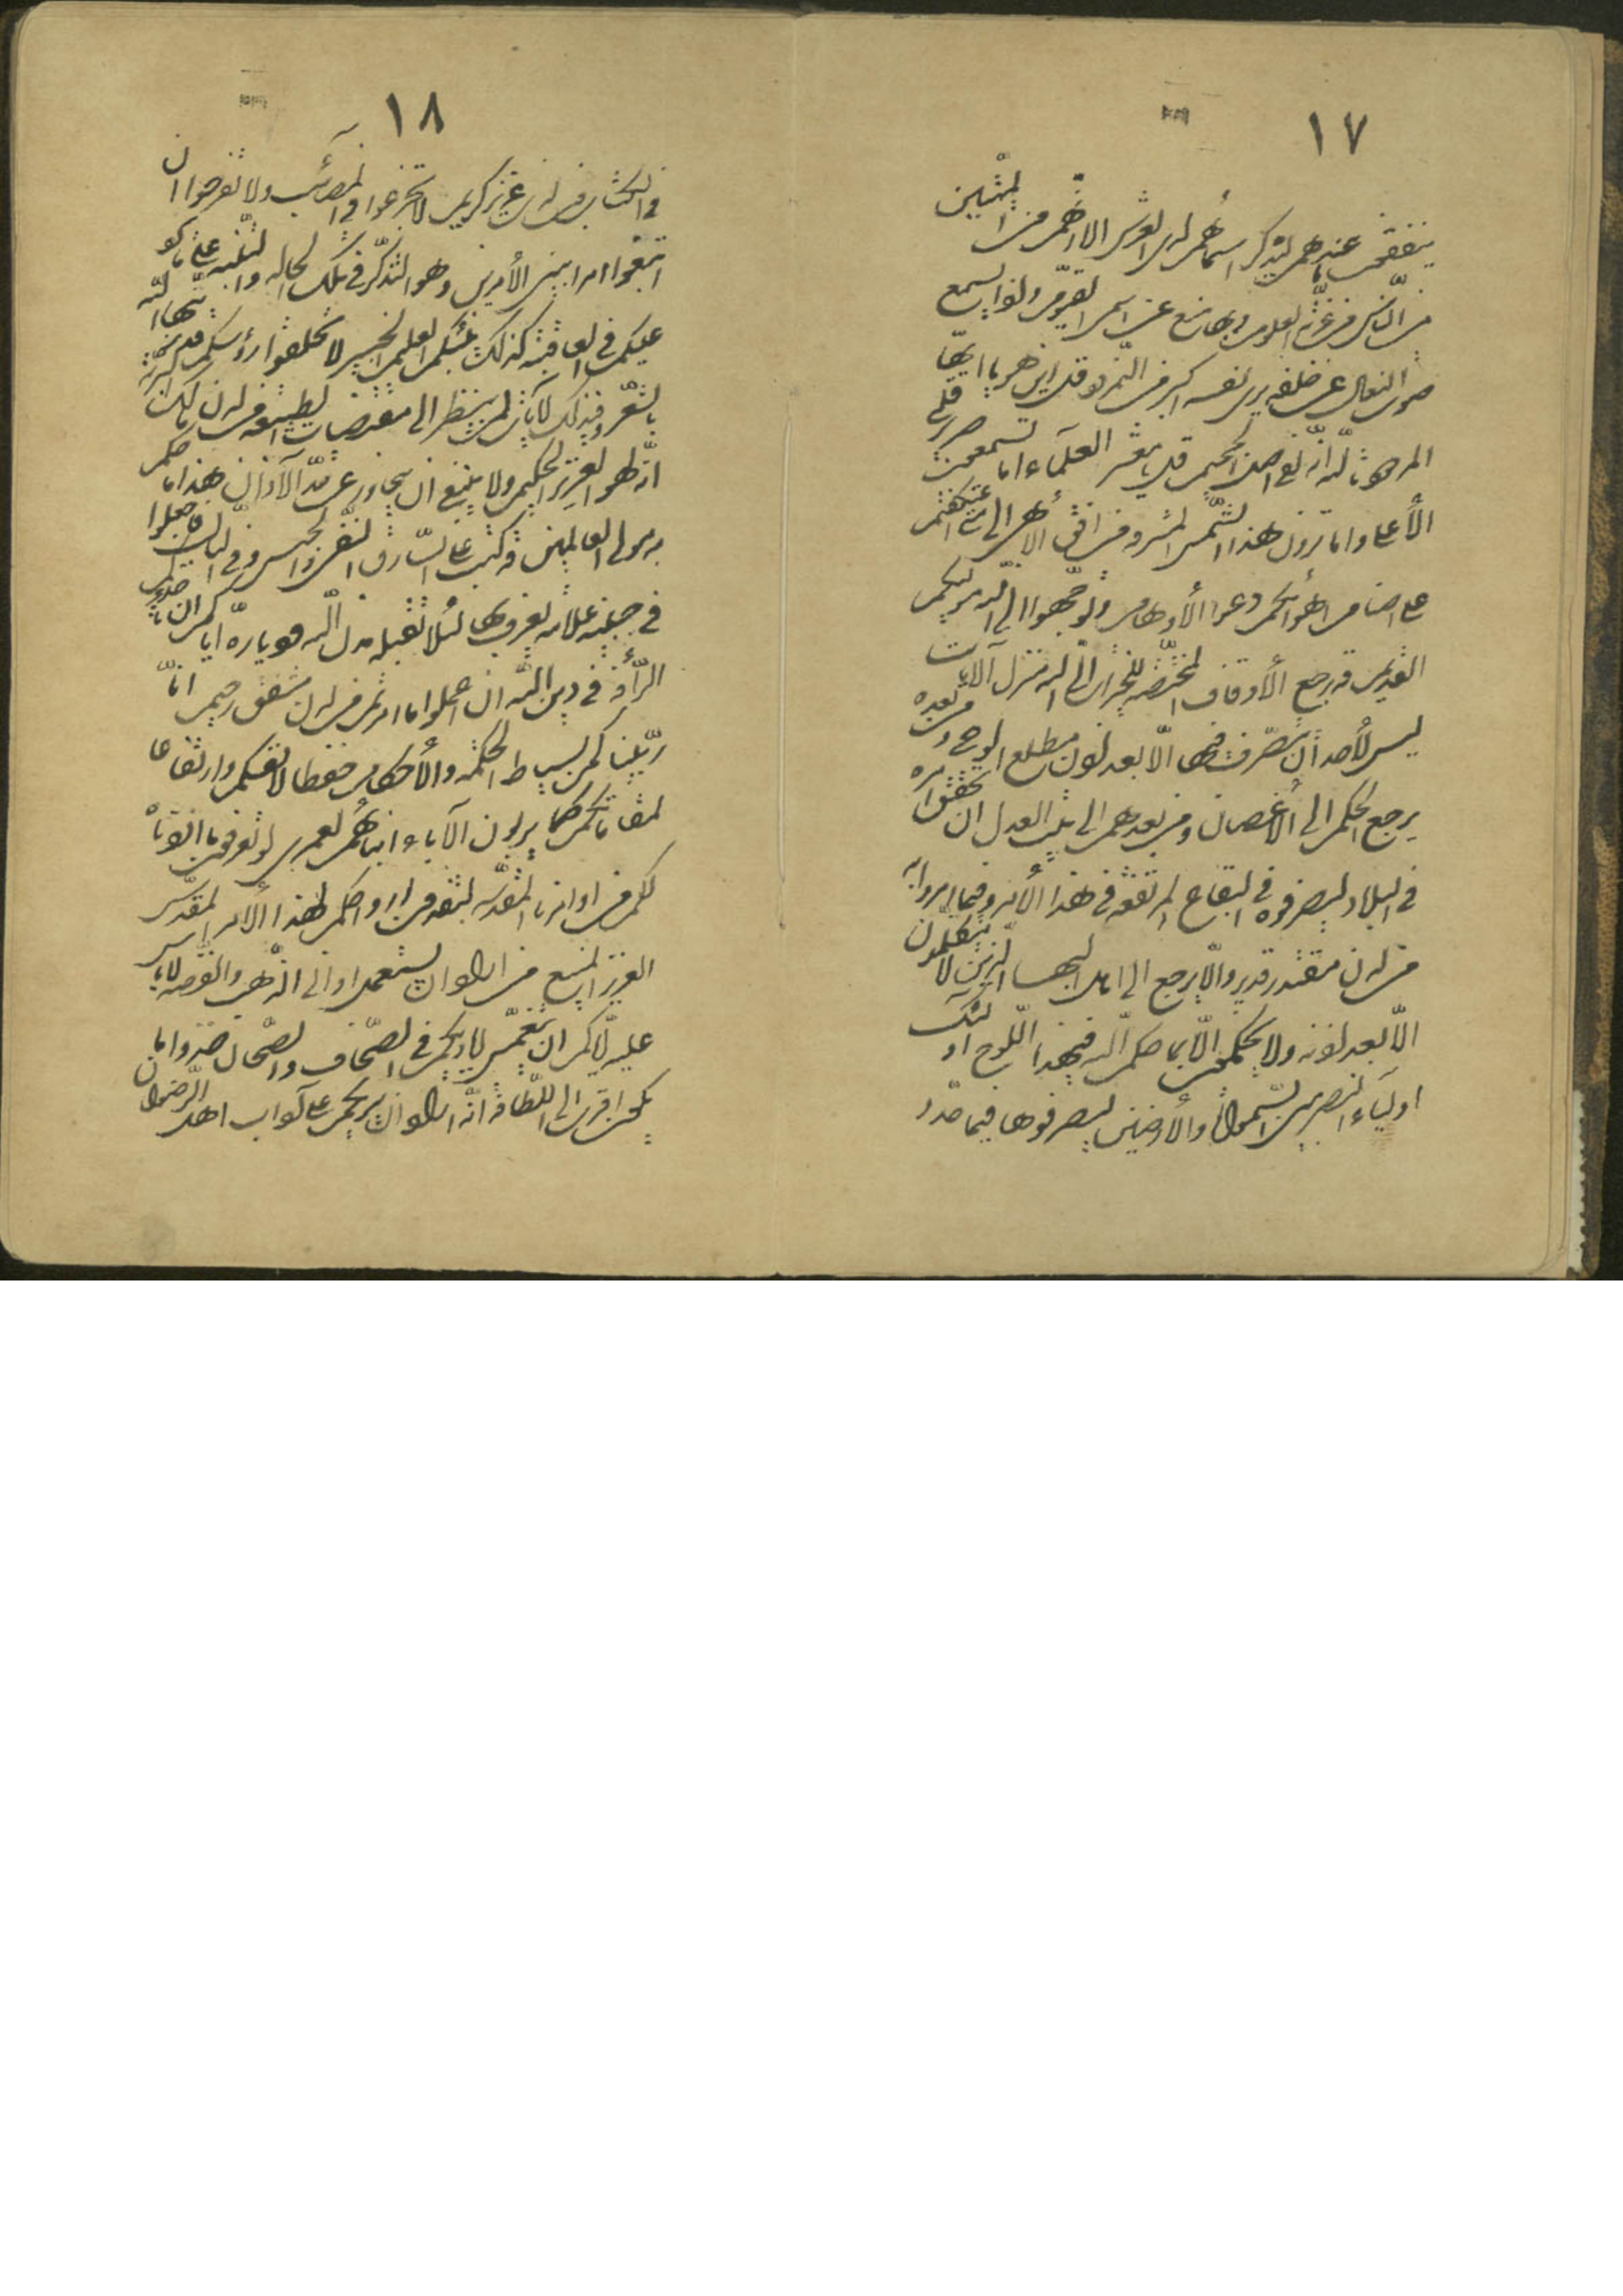 ١٧
ينفقن ما عندهم ليذكر اسمائهم لدى العرش الا انهم من الميّتين
من النّاس من غرّته العلوم وبها منع عن اسمى القيّوم واذا يسمع
صوت النعال عن خلفه يرى نفسه اكبر من النّمرود قل اين هو يا ايّها
المردود تاللّه انّه لفى اصل الجحيم قل يا معشر العلمآء اما تسمعون صرير قلمى
الأعلى واما ترون هذا الشّمس المشرقه من افق الأبهى الى م اعتكفتم
على اصنام اهوائكم دعوا الأوهام وتوجّهوا الى اللّه موليكم
القديم قد رجع الأوقاف المختصّه للخيرات الى اللّه منزل الآيات
ليس لأحد ان يتصّرف فيها الّا بعد اذن مطلع الوحى ومن بعده
يرجع الحكم الى الأغصان ومن بعدهم الى بيت العدل ان تحقّق امره
فى البلاد ليصرفوه فى البقاع المرتفعه فى هذا الأمر وفيما امروا به
من لدن مقتدر قدير والّا يرجع الى اهل البهاء الّذين لا يتكلمون
الّا بعد اذنه ولا يحكمون الّا بما حكم اللّه فيهذا اللّوح اولئك
اوليآء النصر بين السّموات والأرضين ليصرفوها فيما حدد
١٨
فى الكتاب من لدن عزيز كريم لا تجزعوا فى المصآئب ولا تفرحوا ان
ابتغوا امرا بين الأمرين وهو التذكّر فى تلك الحاله والتنّبه على ما يرد
عليكم فى العاقبه كذلك ينبئكم العليم الخبير لا تحلقوا رؤسكم قد زينها اللّه
بالشعر وفى ذلك لآيات لمن ينظر الى مقتضيات الطبيعه من لدن مالك البريّه
انّه لهو العزيز الحكيم ولا ينبغى ان يتجاوز عن حدّ الآذان هذا ما حكم
به مولى العالمين قد كتب على السّارق النّفى والحبس وفى الثالث فاجعلوا
فى جبينه علامه يعرف بها لئلا تقبله مدن اللّه ودياره ايّاكم ان تاخذكم
الرّأفه فى دين اللّه ان اعملوا ما امرتم من لدن مشفق رحيم انّا
ربّيناكم بسياط الحكمه والأحكام حفظا لانفسكم وارتفاعا
لمقاماتكم كما يربون الآباء ابنائهم لعمرى لو تعرفون ما اردناه
لكم من اوامرنا المقدّسه لتفدون ارواحكم لهذا الأمر المقدّس
العزيز المنيع من اراد ان يستعمل اوانى الذّهب والفضّه لا باس
عليه ايّاكم ان تنغمس اياديكم فى الصّحاف والصّحان خذوا ما
يكون اقرب الى اللّطافه انّه اراد ان يريكم على آداب اهل الرّضوان